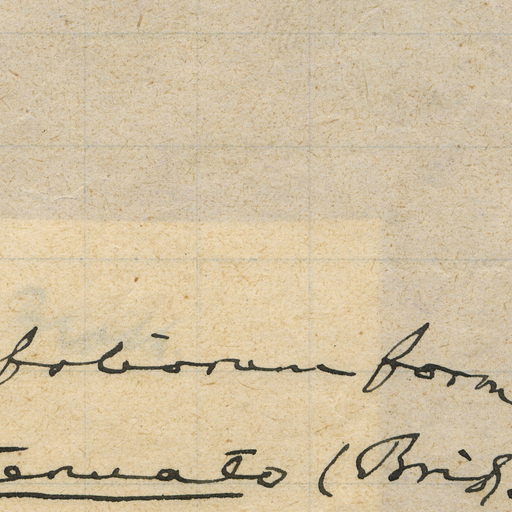 foliorum form
ternato (Brig